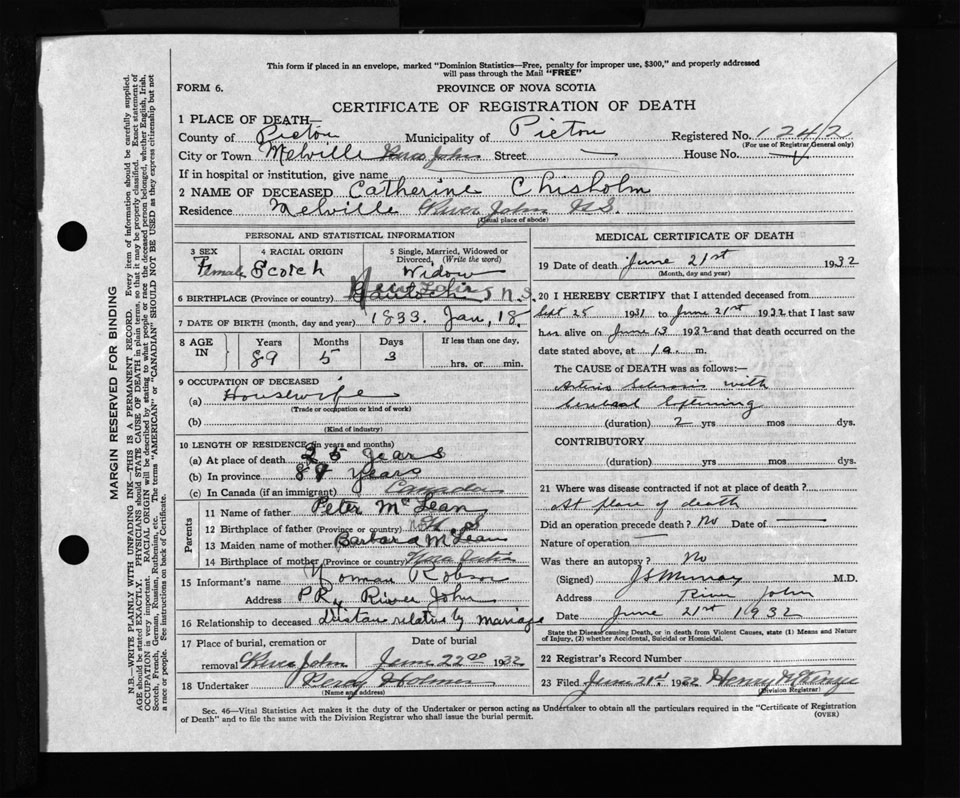 This form if placed in an envelope, marked "Dominion Statistics—Free, penalty for improper use, $300," and properly addressed
will pass through the Mail "FREE"
FORM 6. PROVINCE OF NOVA SCOTIA
CERTIFICATE OF REGISTRATION OF DEATH
1 PLACE OF DEATH
County of Pictou Municipality of Pictou Registered No. 1242
(For use of Registrar General only)
City or Town Melville River John Street — House No.
If in hospital or institution, give name
2 NAME OF DECEASED Catherine Chisholm
Residence Melville River John N.S.
(Usual place of abode)
PERSONAL AND STATISTICAL INFORMATION
3 SEX 4 RACIAL ORIGIN 5 Single, Married, Widowed or
Divorced, (Write the word)
Female Scotch Widow
6 BIRTHPLACE (Province or country) N.S.
7 DATE OF BIRTH (month, day and year) 1833. Jan, 18
8 AGE IN Years Months Days If less than one day,
89 5 3 hrs. or min.
9 OCCUPATION OF DECEASED
(a) Housewife
(Trade or occupation or kind of work)
(b)
(Kind of industry)
10 LENGTH OF RESIDENCE (in years and months)
(a) At place of death 25 Years
(b) In province 89 Years
(c) In Canada (if an immigrant) Canada
Parents
11 Name of father Peter McLean
12 Birthplace of father (Province or country) N.S
13 Maiden name of mother Barbara McLean
14 Birthplace of mother (Province or country) Nova Scotia
15 Informant's name Norman Robson
Address River John
16 Relationship to deceased Distan relative by marriage
17 Place of burial, cremation or Date of burial
removal River John June 22nd 1932
18 Undertaker Percy Holmes
(Name and address)
MEDICAL CERTIFICATE OF DEATH
19 Date of death June 21st 1932
(Month, day and year)
20 I HEREBY CERTIFY that I attended deceased from
Sept 25 1931 to June 21st 1932 that I last saw
her alive on June 13 1932 and that death occurred on the
date stated above, at 1 a. m.
The CAUSE of DEATH was as follows:—
Arterio Sclerosis with
Cerebral Softening
(duration) 2 yrs mos dys.
CONTRIBUTORY
(duration) yrs. mos. dys.
21 Where was disease contracted if not at place of death?
At place of death
Did an operation precede death? No Date of —
Nature of operation —
Was there an autopsy? No
(Signed) J S Murray M.D.
Address River John
Date June 21st 1932
State the Disease causing Death, or in death from Violent Causes, state (1) Means and Nature
of Injury, (2) whether Accidental, Suicidal or Homicidal.
22 Registrar's Record Number
23 Filed June 21st 1932 Henry McKenzie
(Division Registrar)
Sec. 46—Vital Statistics Act makes it the duty of the Undertaker or person acting as Undertaker to obtain all the particulars required in the "Certificate of Registration
of Death" and to file the same with the Division Registrar who shall issue the burial permit. (OVER)
MARGIN RESERVED FOR BINDING
N.B.—WRITE PLAINLY WITH UNFADING INK—THIS IS A PERMANENT RECORD. Every item of information should be carefully supplied.
AGE should be stated EXACTLY. PHYSICIANS should STATE CAUSE OF DEATH in plain terms, so that it may be properly classified. Exact statement of
OCCUPATION is very important. RACIAL ORIGIN will be described by stating to what people or race the deceased person belonged, whether English, Irish,
Scotch, French, German, Russian, Ruthenian, etc. The terms "AMERICAN" or "CANADIAN" SHOULD NOT BE USED as they express citizenship but not
a race or people. See instructions on back of Certificate.